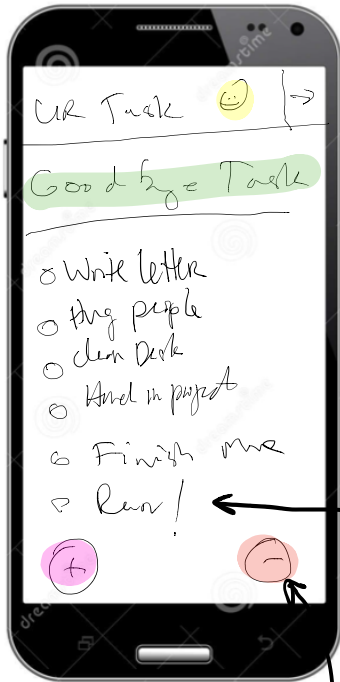 UR Task
Goodbye Task
Write letter
Hug people
Clean Desk
Hand in project
Finish
Run!
+
-
dreamstime